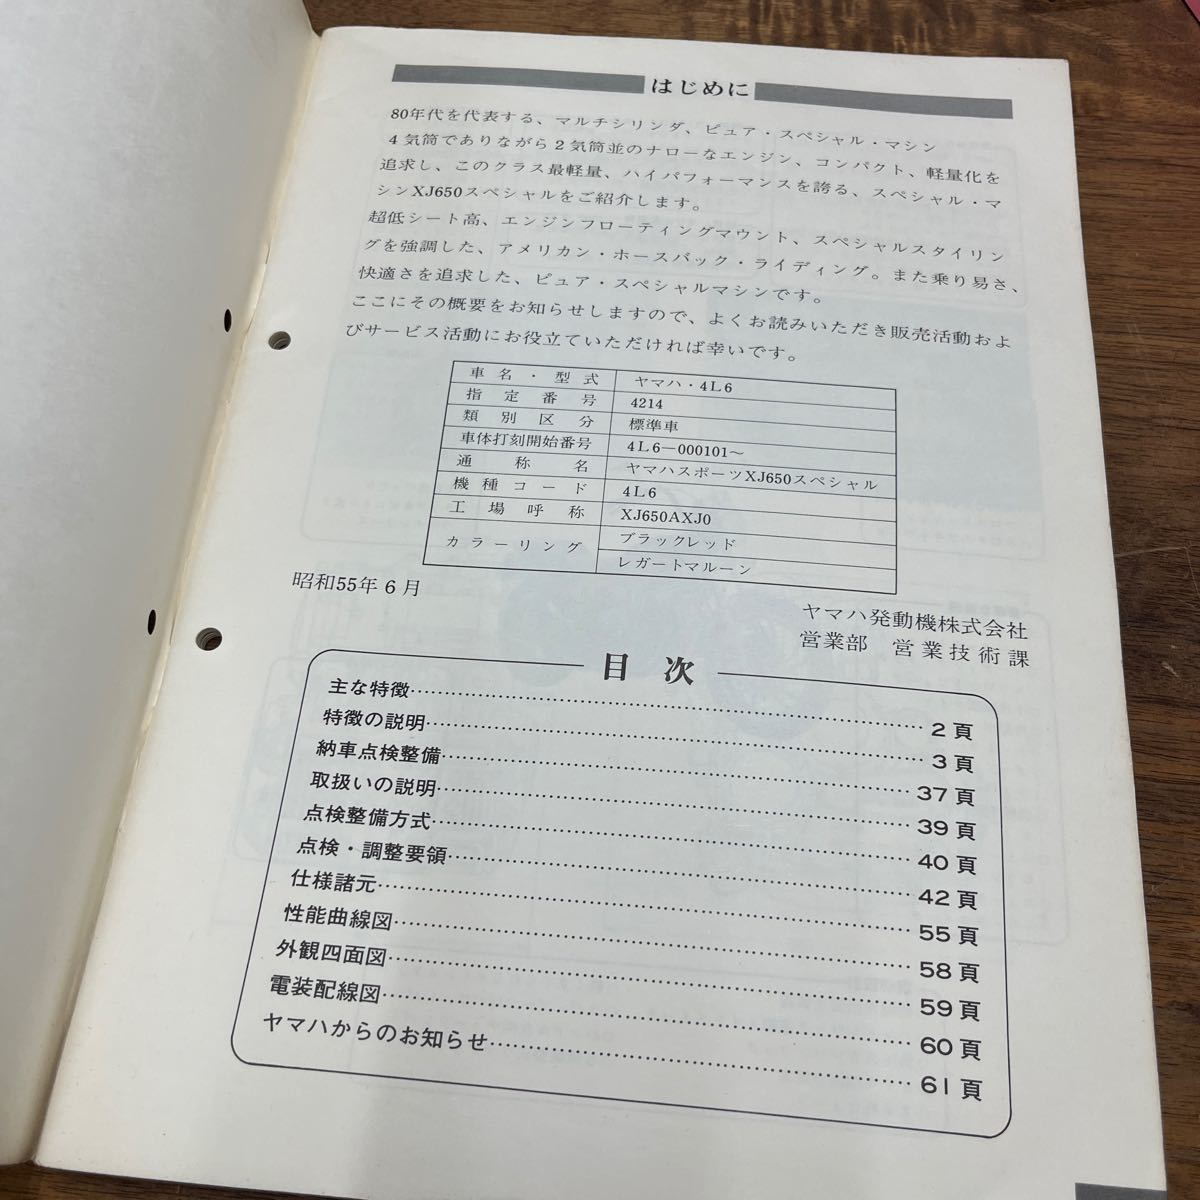 はじめに
80年代を代表する、マルチシリンダ、ピュア・スペシャル・マシン
4気筒でありながら2気筒並のナローなエンジン、コンパクト、軽量化を
追求し、このクラス最軽量、ハイパフォーマンスを誇る、スペシャル・マ
シンXJ650スペシャルをご紹介します。
超低シート高、エンジンフローティングマウント、スペシャルスタイリン
グを強調した、アメリカン・ホースバック・ライディング。また乗り易さ、
快適さを追求した、ピュア・スペシャルマシンです。
ここにその概要をお知らせしますので、よくお読みいただき販売活動およ
びサービス活動にお役立ていただければ幸いです。
車名・型式 ヤマハ・4L6
指定番号 4214
類別区分 標準車
車体打刻開始番号 4L6―000101～
通称名 ヤマハスポーツXJ650スペシャル
機種コード 4L6
工場呼称 XJ650AXJ0
カラーリング ブラックレッド
レガートマルーン
昭和55年6月
ヤマハ発動機株式会社
営業部 営業技術課
目次
主な特徴……2頁
特徴の説明……3頁
納車点検整備……37頁
取扱いの説明……39頁
点検整備方式……40頁
点検・調整要領……42頁
仕様諸元……55頁
性能曲線図……58頁
外観四面図……59頁
電装配線図……60頁
ヤマハからのお知らせ……61頁